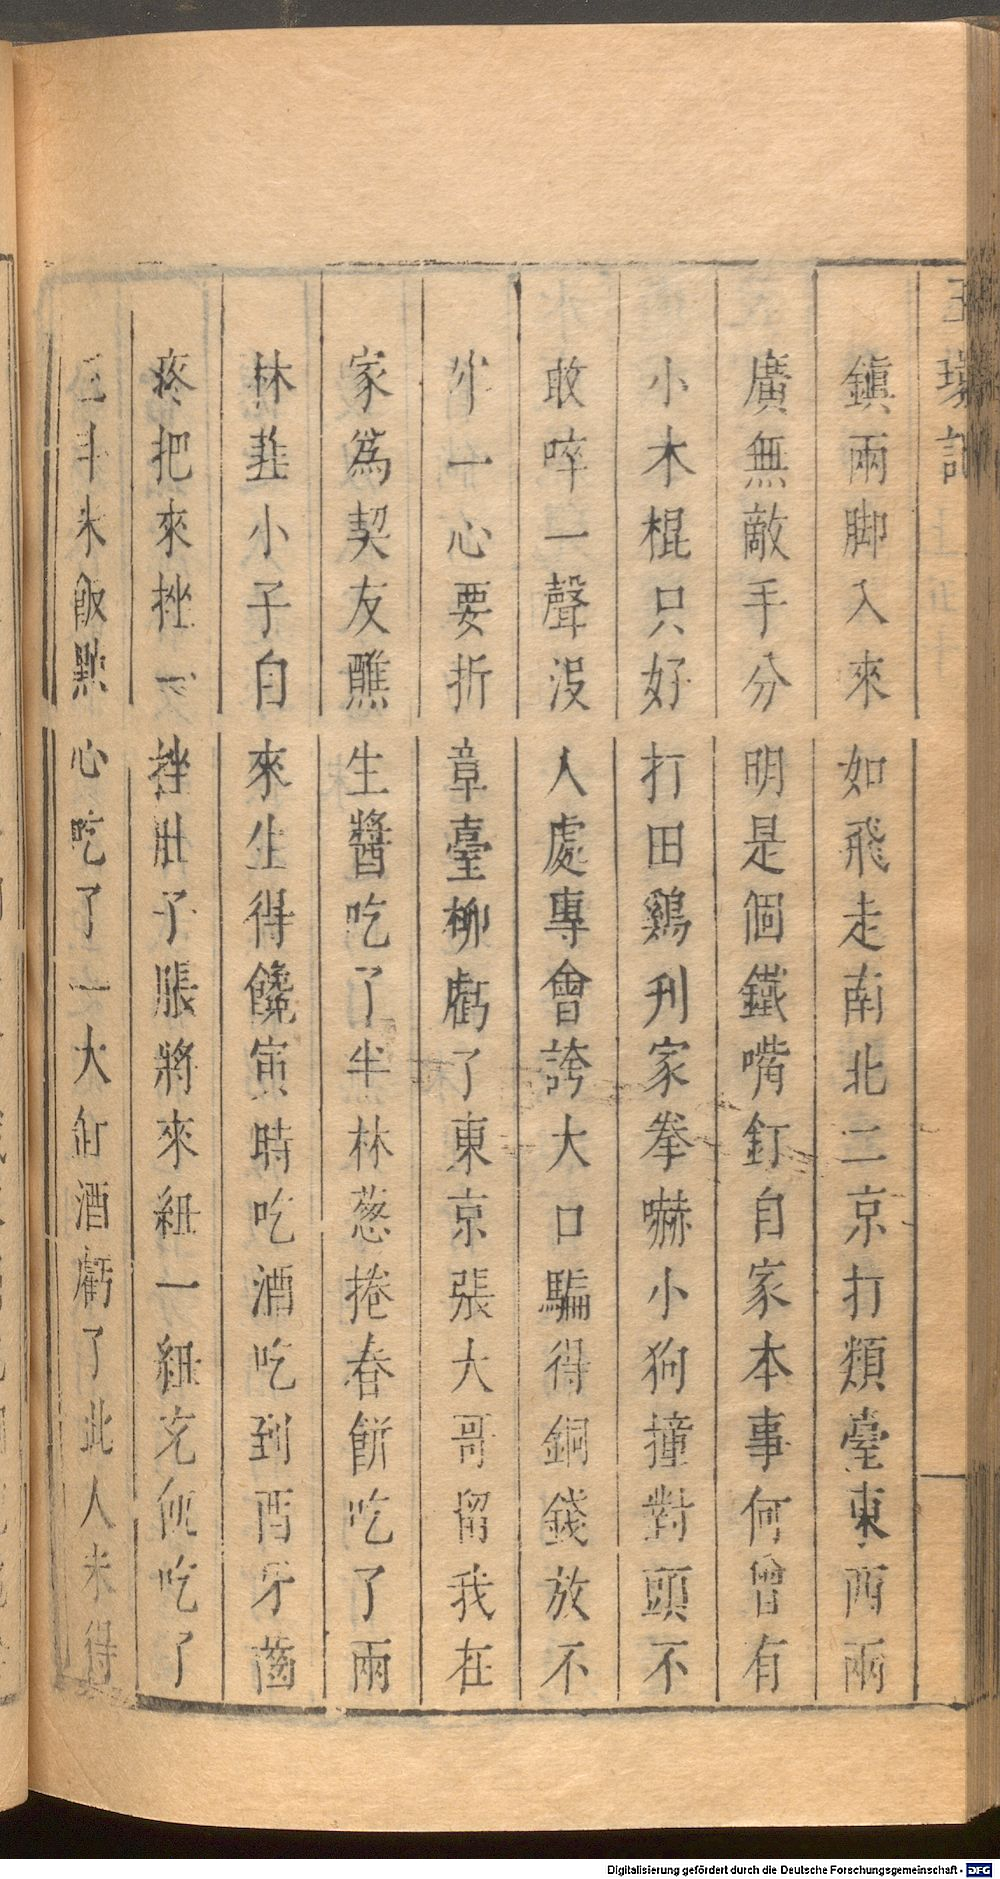 玉環記
鎮兩脚入來如飛走南北二京打類臺東西兩
廣無敵手分明是個鐵嘴釘自家本事何曾有
小木棍只好打田鷄刋家拳嚇小狗撞對頭不
敢啐一聲没人處專會誇大口騙得銅錢放不
一心要折章臺柳虧了東京張大哥留我在
家爲契友醮生醬吃了半林葱捲春餅吃了兩
林韮小子自來生得饞寅時吃酒吃到酉牙齒
疼把來挫一挫肚子脹將來紐一紐吃了
斗米飯點心吃了一大缸酒虧了此人未得
Digitalisierung gefördert durch die Deutsche Forschungsgemeinschaft - DFG